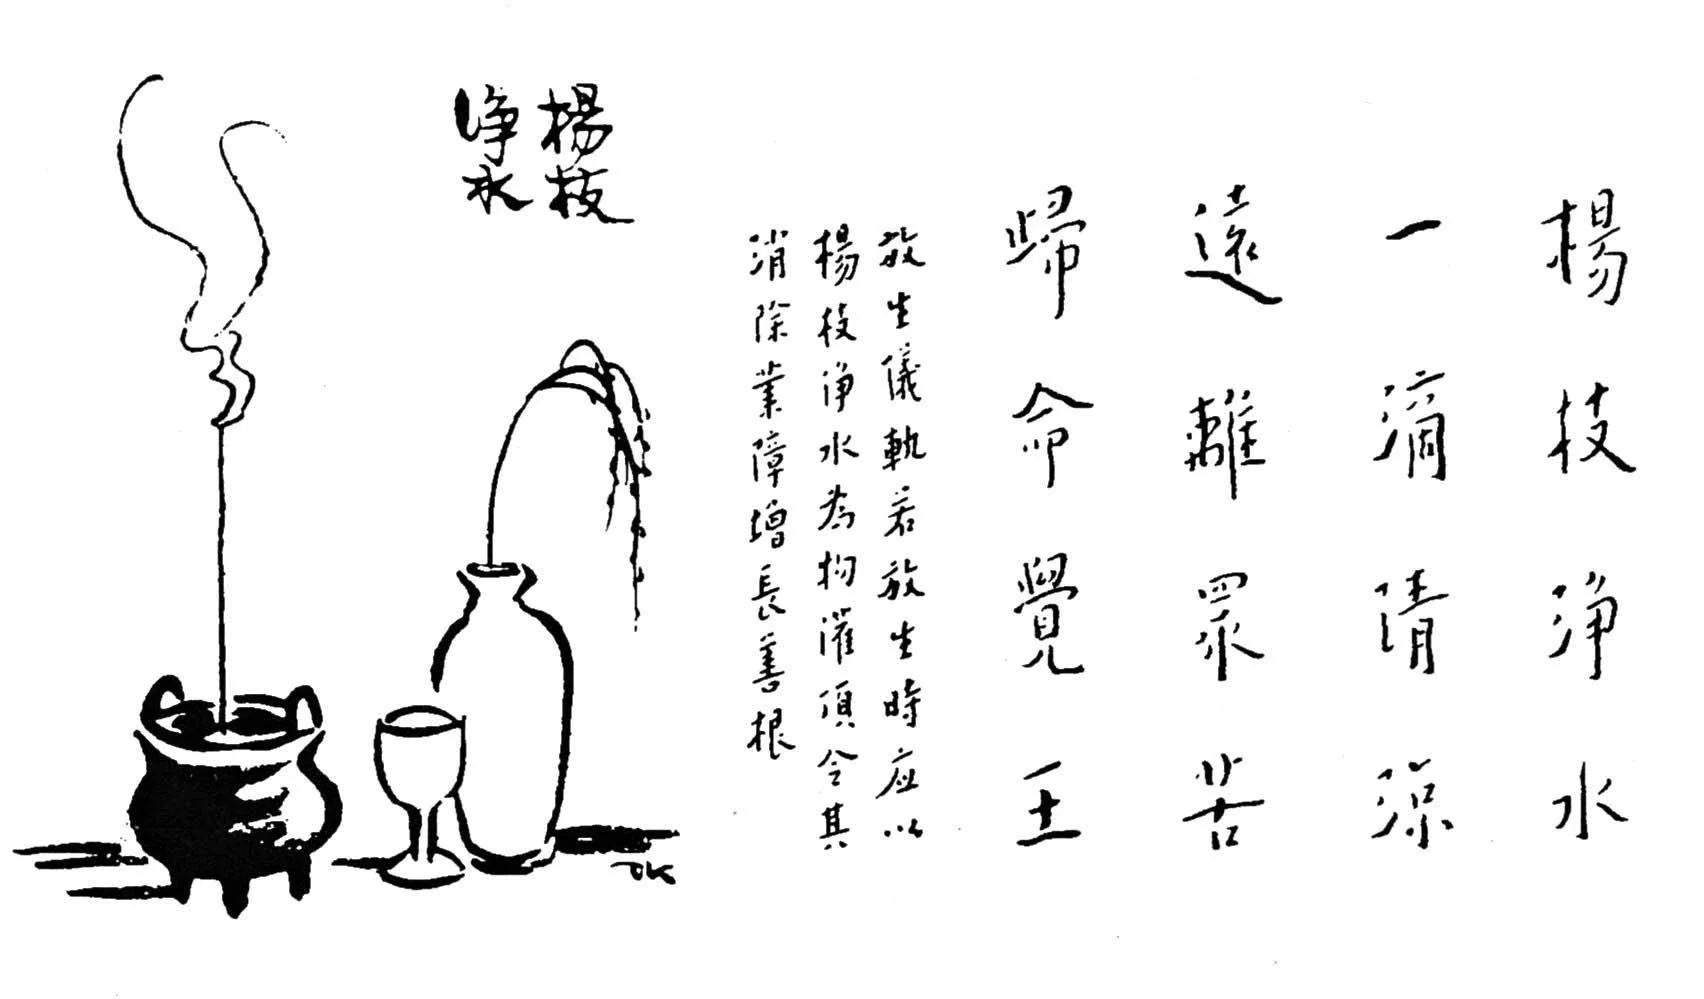 楊枝淨水
一滴清涼
遠離眾苦
歸命覺王
放生儀軌若放生時应以
楊枝淨水為物灌頂令其
消除業障增長善根
楊枝
淨水
TK